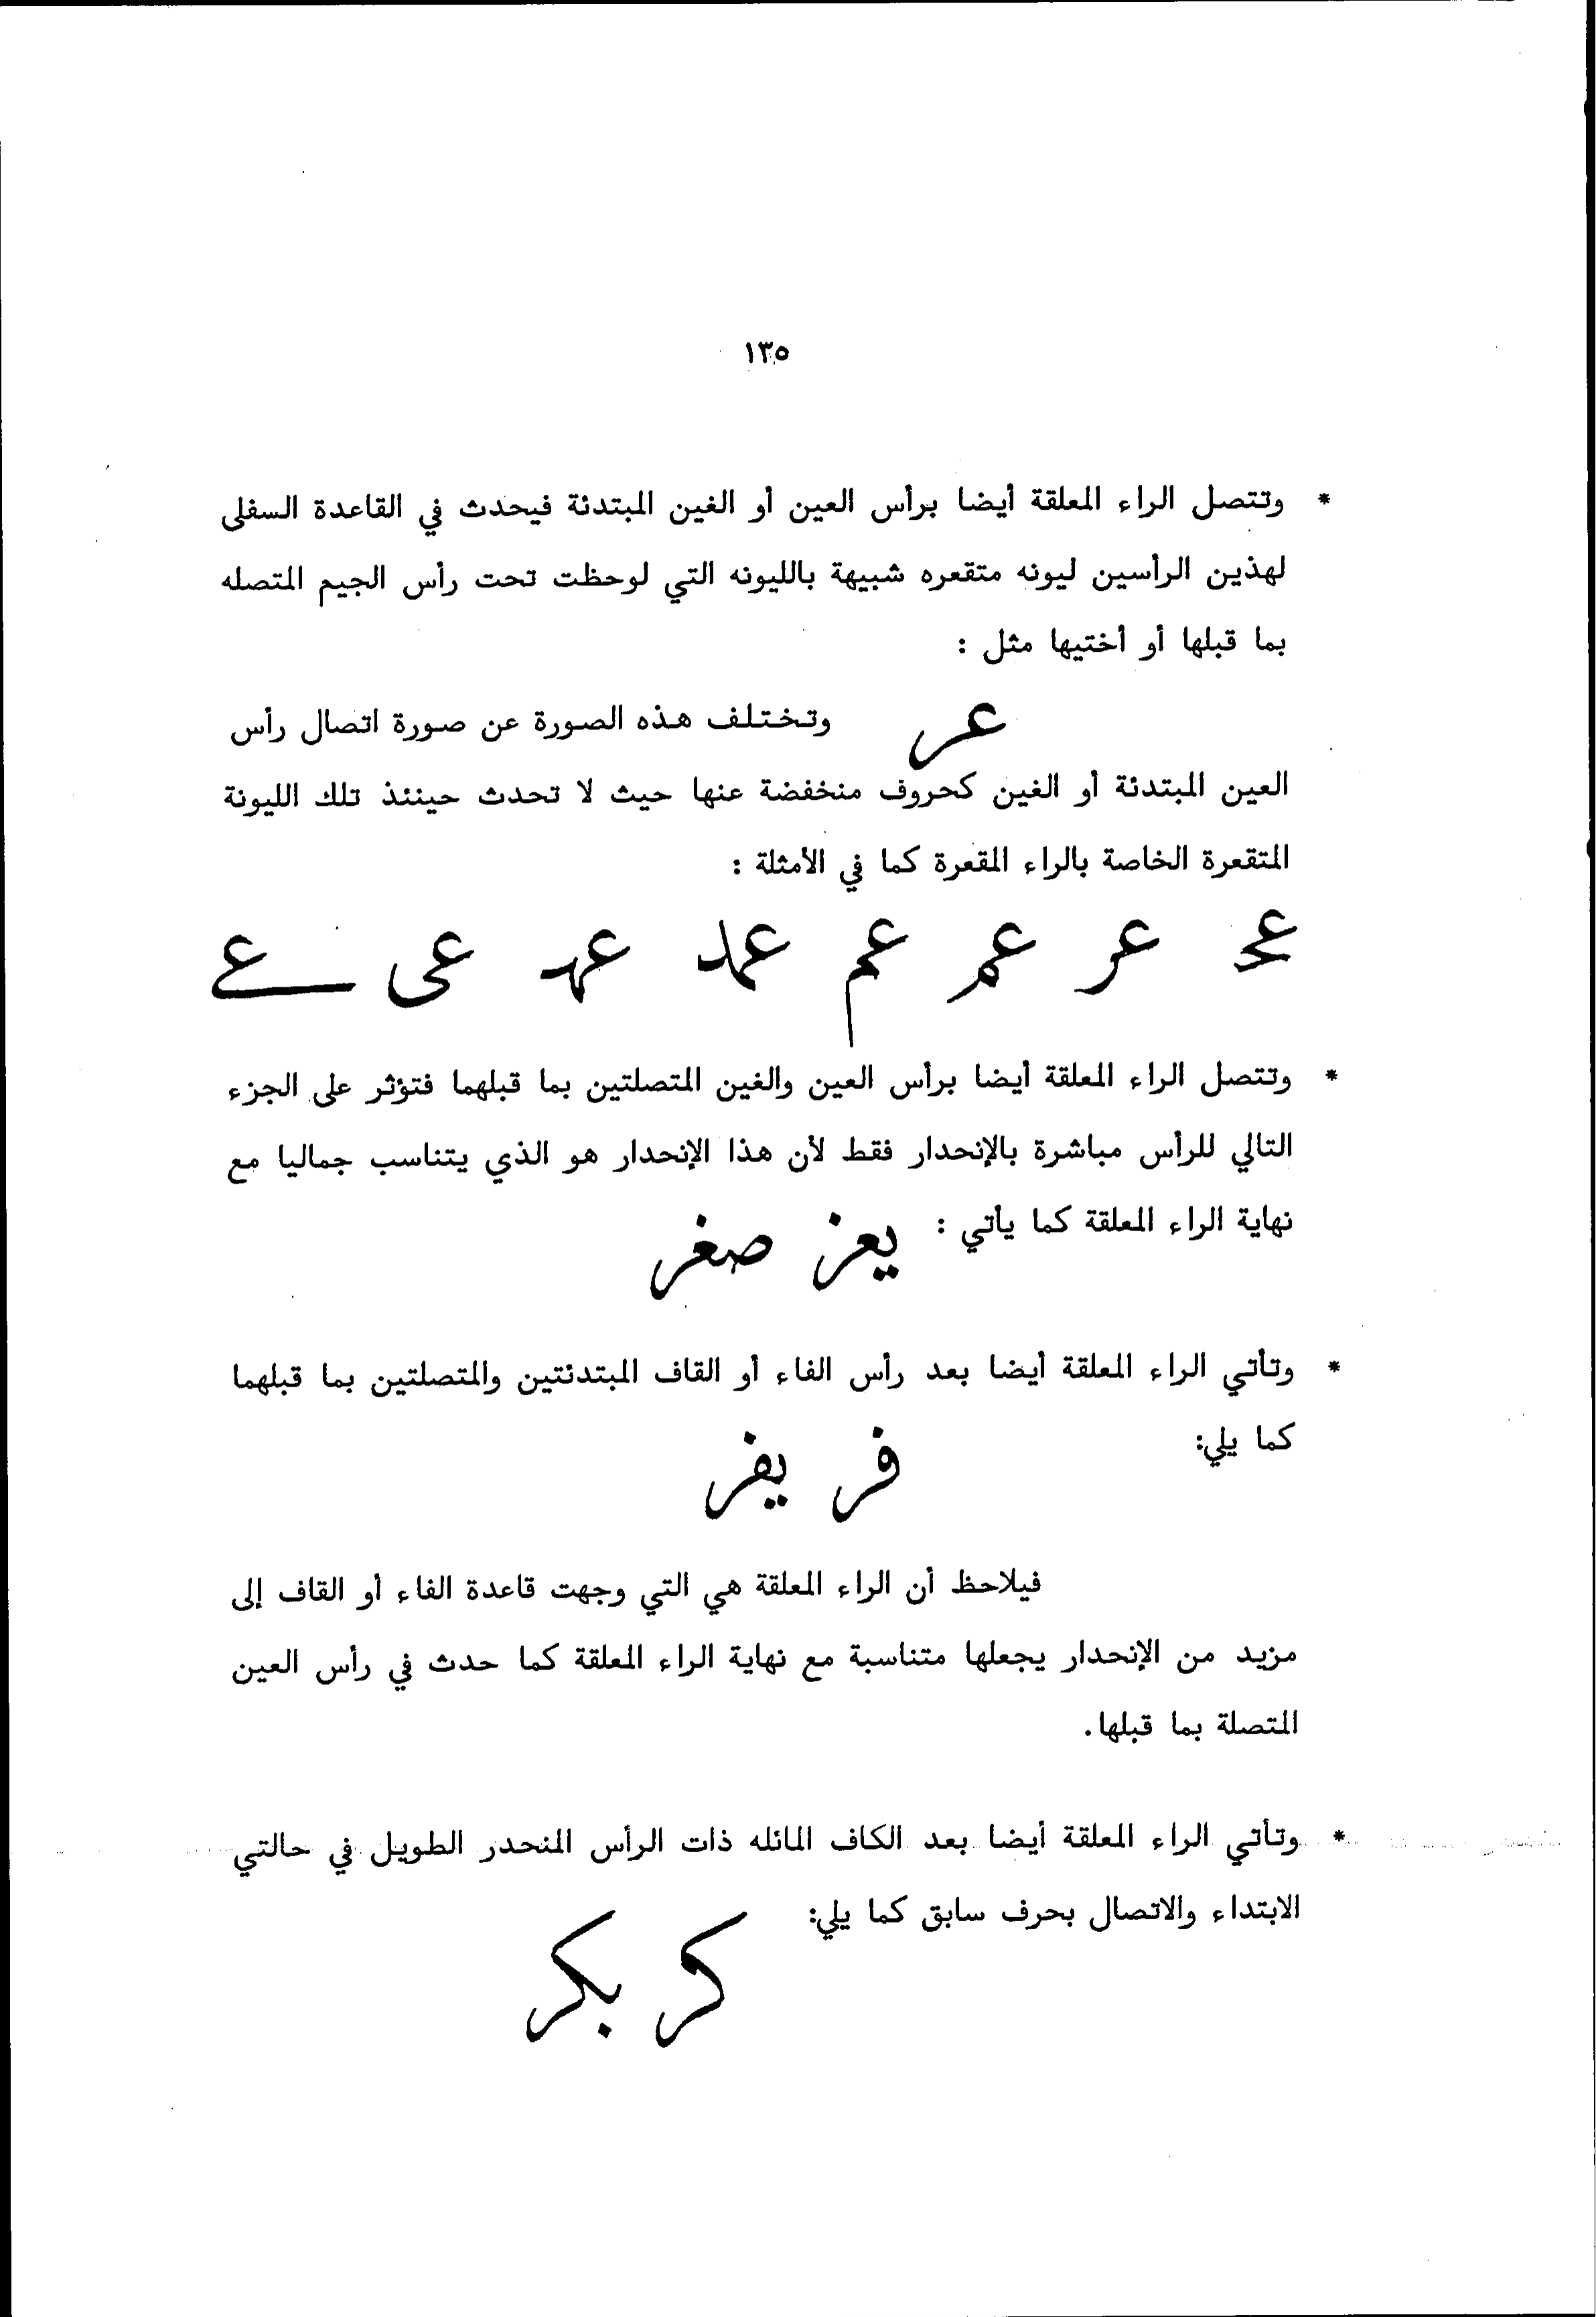 ١٣٥
* وتتصل الراء المعلقة أيضا برأس العين أو الغين المبتدئة فيحدث في القاعدة السفلى
لهذين الرأسين ليونه متقعره شبيهة بالليونه التي لوحظت تحت رأس الجيم المتصله
بما قبلها أو أختيها مثل :
عر وتختلف هذه الصورة عن صورة اتصال رأس
العين المبتدئة أو الغين كحروف منخفضة عنها حيث لا تحدث حينئذ تلك الليونة
المتقعرة الخاصة بالراء المقعرة كما في الأمثلة :
عر عمر عم عمد عهد عى ع
* وتتصل الراء المعلقة أيضا برأس العين والغين المتصلتين بما قبلهما فتؤثر على الجزء
التالي للرأس مباشرة بالإنحدار فقط لأن هذا الإنحدار هو الذي يتناسب جماليا مع
نهاية الراء المعلقة كما يأتي : يعز صغر
* وتأتي الراء المعلقة أيضا بعد رأس الفاء أو القاف المبتدئتين والمتصلتين بما قبلهما
كما يلي: فر يفر
فيلاحظ أن الراء المعلقة هي التي وجهت قاعدة الفاء أو القاف إلى
مزيد من الإنحدار يجعلها متناسبة مع نهاية الراء المعلقة كما حدث في رأس العين
المتصلة بما قبلها.
* وتأتي الراء المعلقة أيضا بعد الكاف المائله ذات الرأس المنحدر الطويل في حالتي
الابتداء والاتصال بحرف سابق كما يلي: كر بكر